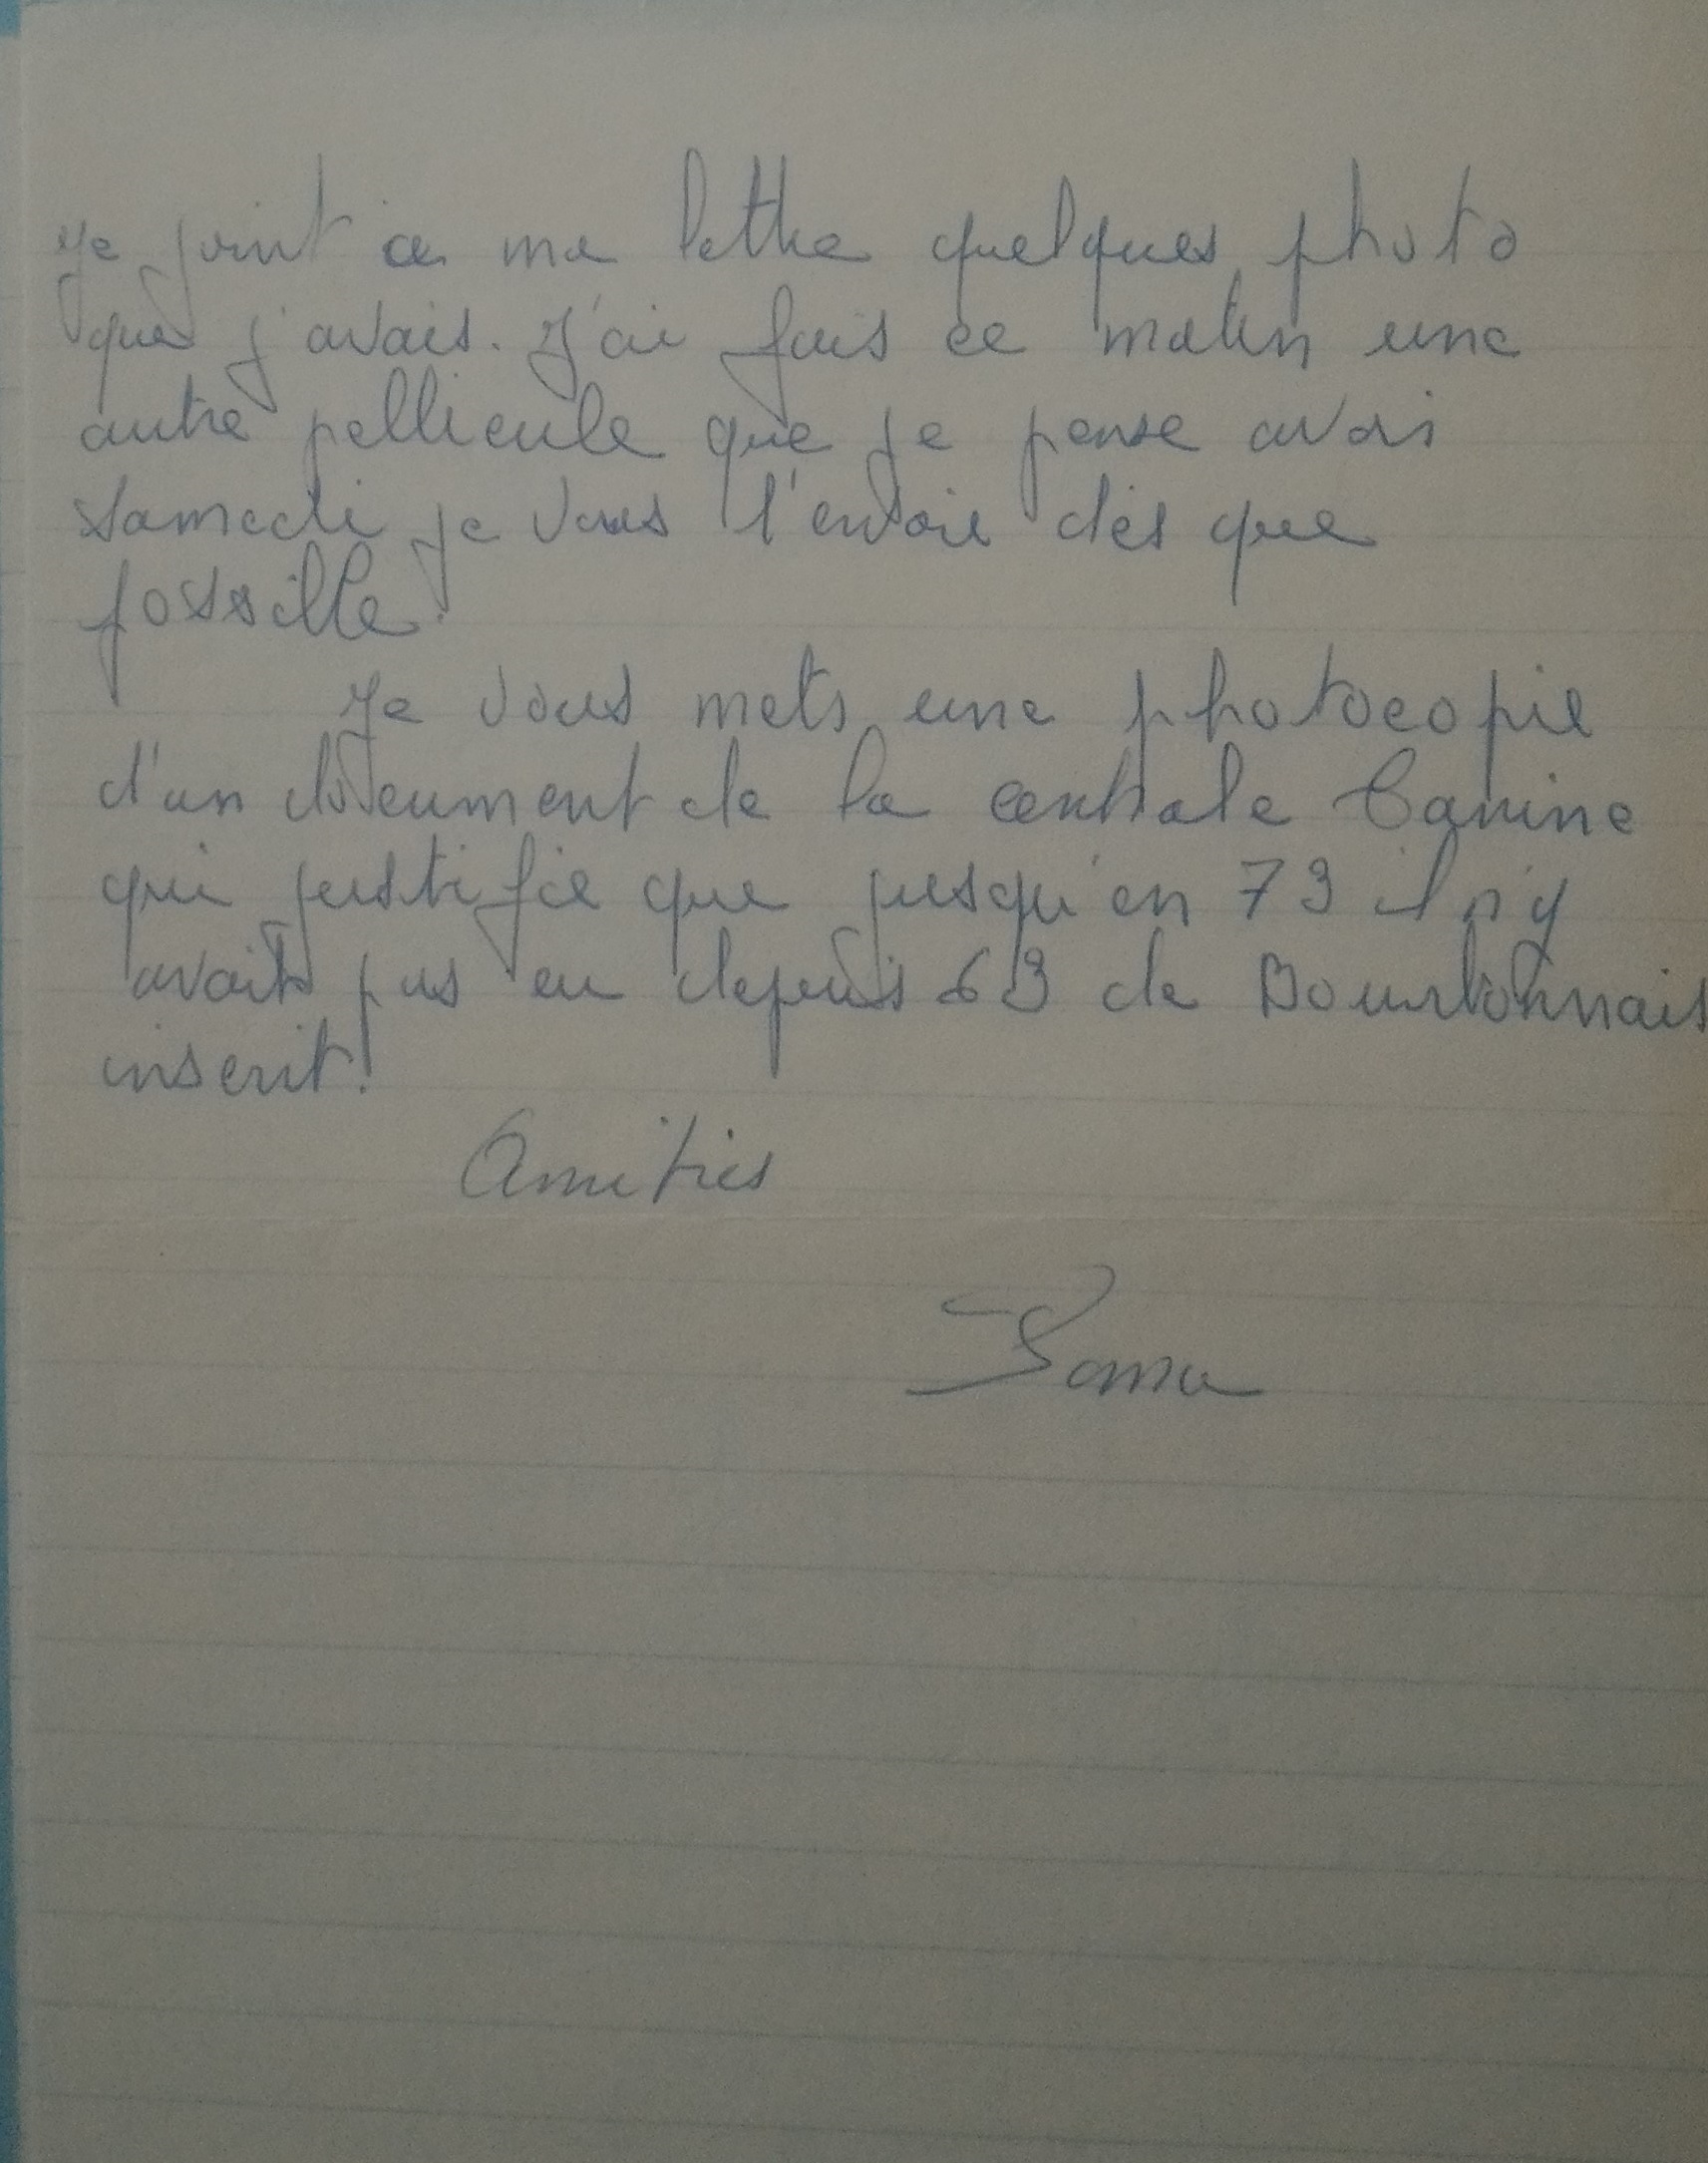 Je joint a ma lettre quelques photo
que j'avais. J'ai fais ce matin une
autre pellicule que je pense avoir
samedi je vous l'envoie dès que
possible.
Je vous mets une photocopie
d'un document de la centrale Canine
qui justifie que jusqu'en 73 il n'y
avait pas eu depuis 63 de Bourbonnais
inscrit!
Amitiés